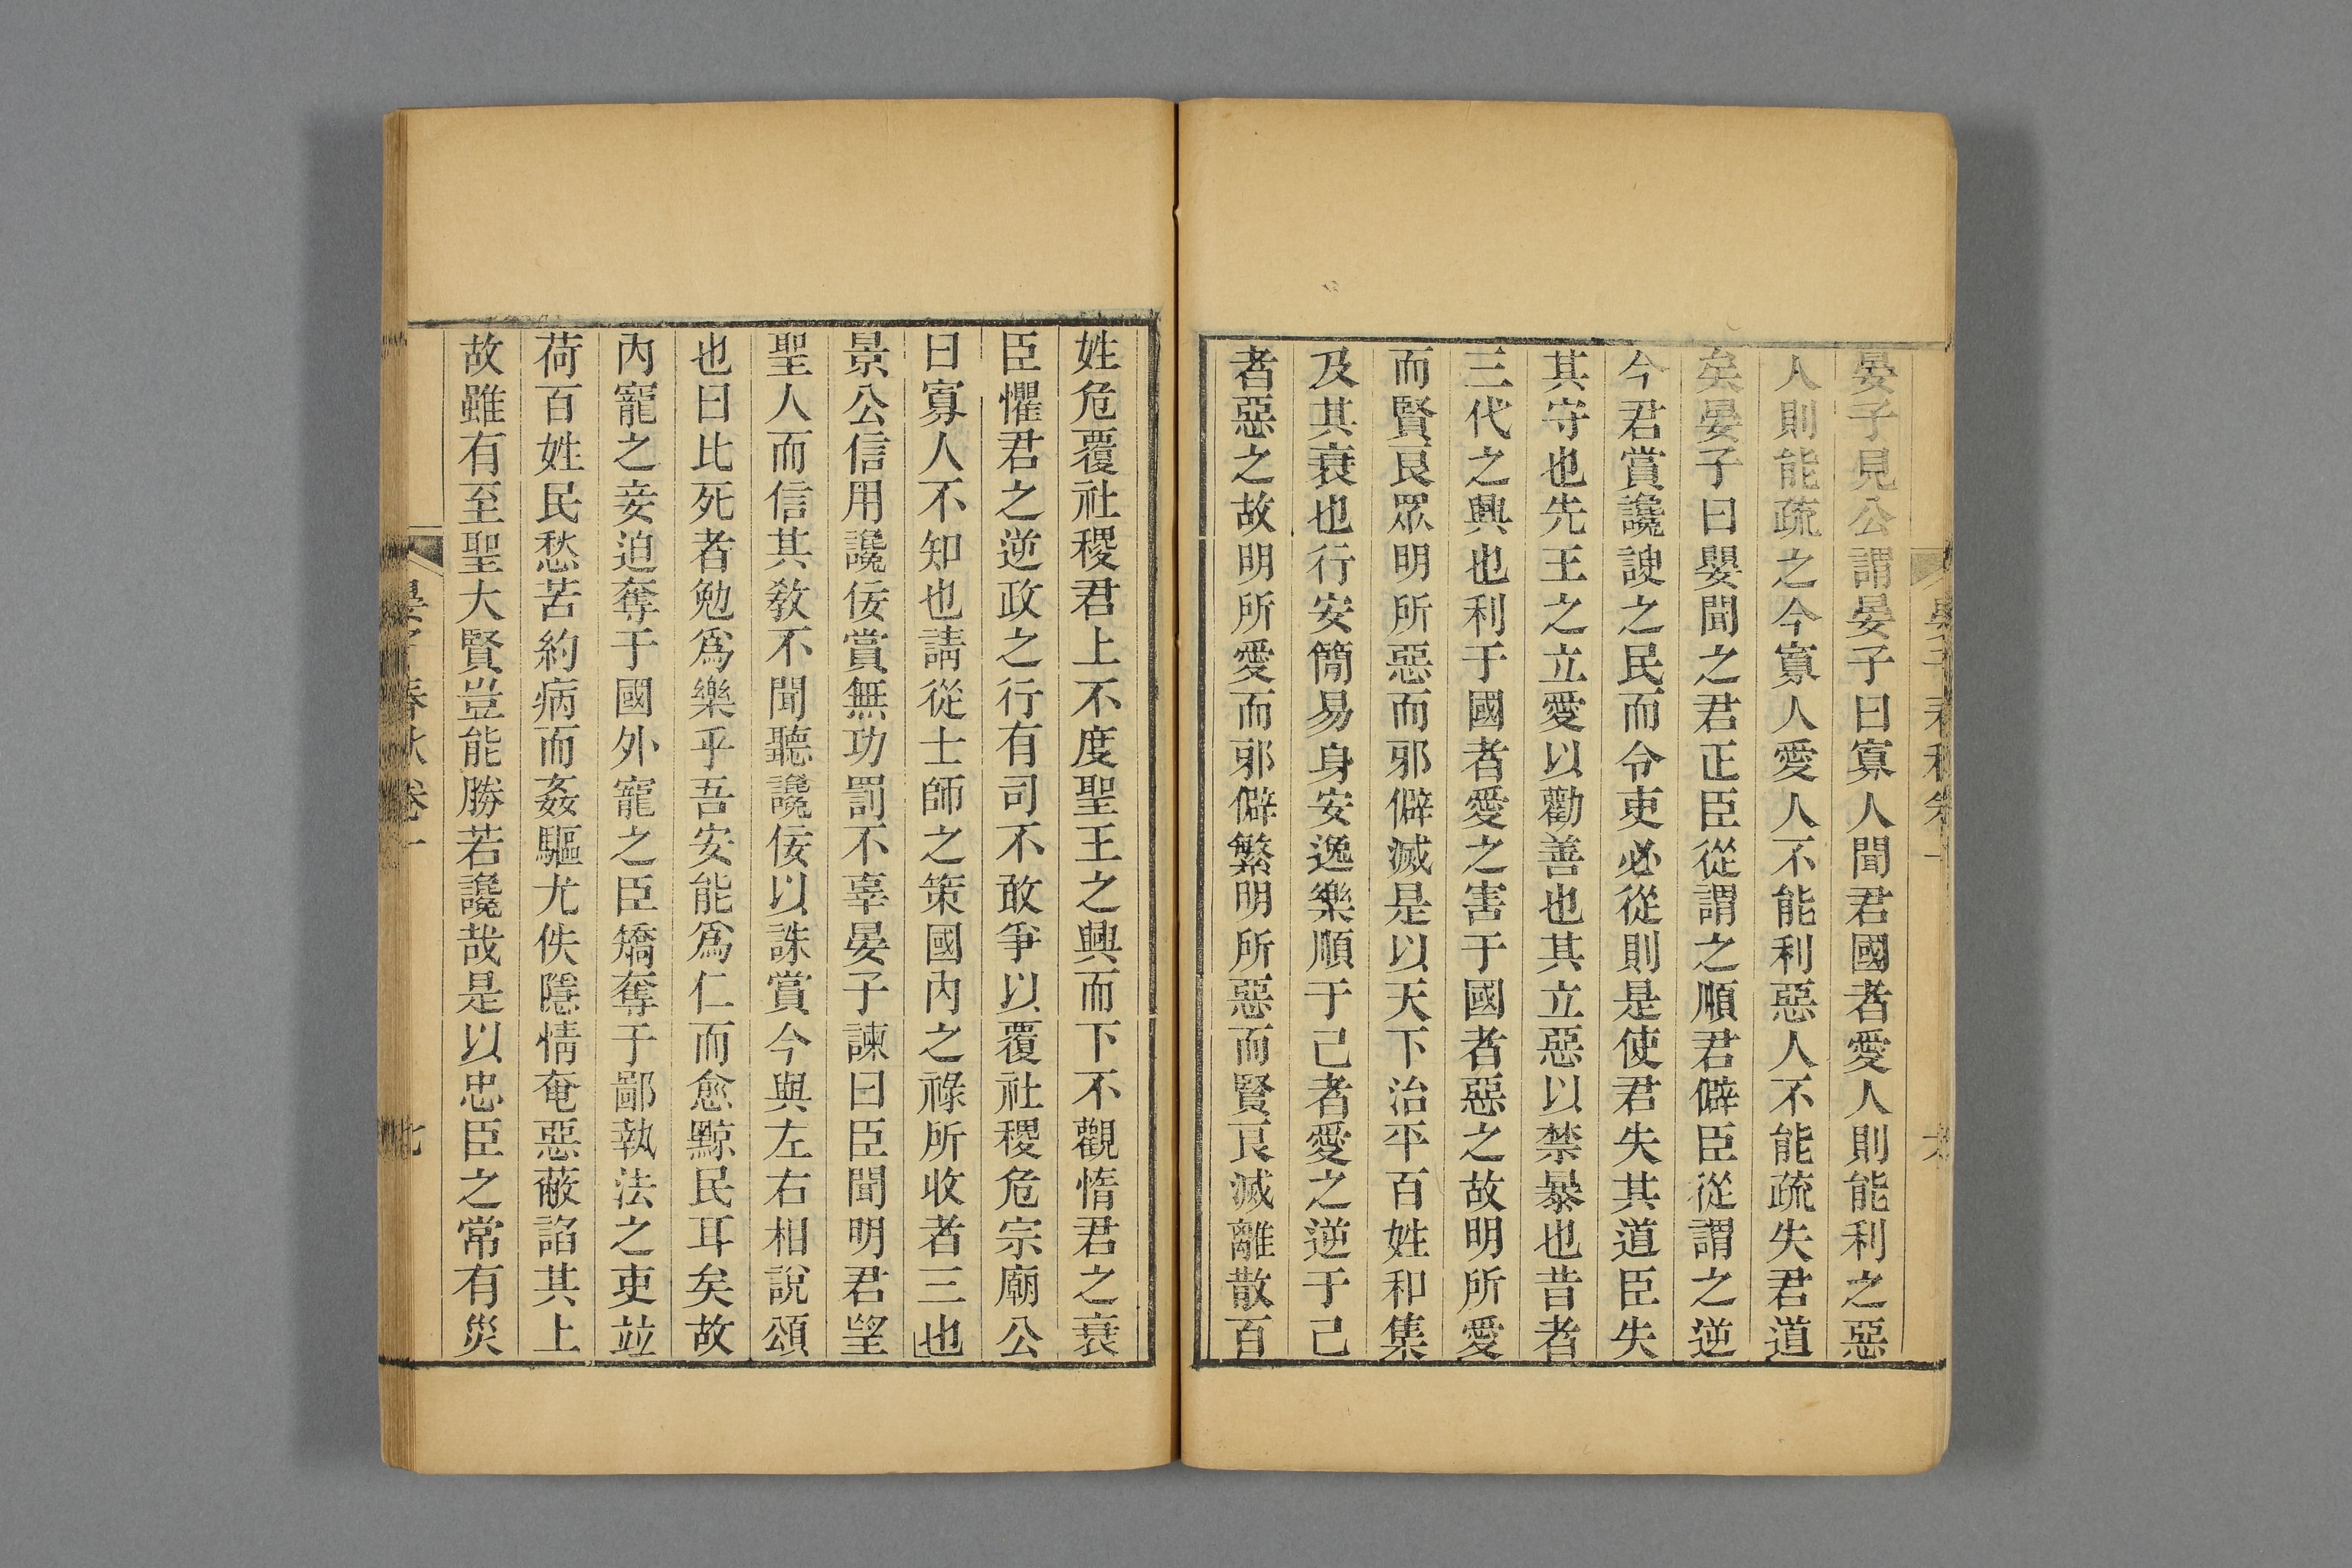 晏子見公謂晏子曰寡人聞君國者愛人則能利之惡
人則能疏之今寡人愛人不能利惡人不能疏失君道
矣晏子曰嬰聞之君正臣從謂之順君僻臣從謂之逆
今君賞讒諛之民而令吏必從則是使君失其道臣失
其守也先王之立愛以勸善也其立惡以禁暴也昔者
三代之興也利于國者愛之害于國者惡之故明所愛
而賢良眾明所惡而邪僻滅是以天下治平百姓和集
及其衰也行安簡易身安逸樂順于己者愛之逆于己
者惡之故明所愛而邪僻繁明所惡而賢良滅離散百
姓危覆社稷君上不度聖王之興而下不觀惰君之衰
臣懼君之逆政之行有司不敢爭以覆社稷危宗廟公
曰寡人不知也請從士師之策國內之祿所收者三也
景公信用讒佞賞無功罰不辜晏子諫曰臣聞明君望
聖人而信其教不聞聽讒佞以誅賞今與左右相說頌
也曰比死者勉爲樂乎吾安能爲仁而愈黥民耳矣故
內寵之妾迫奪于國外寵之臣矯奪于鄙執法之吏竝
荷百姓民愁苦約病而姦驅尤佚隱情奄惡蔽諂其上
故雖有至聖大賢豈能勝若讒哉是以忠臣之常有災
晏子春秋卷一
七